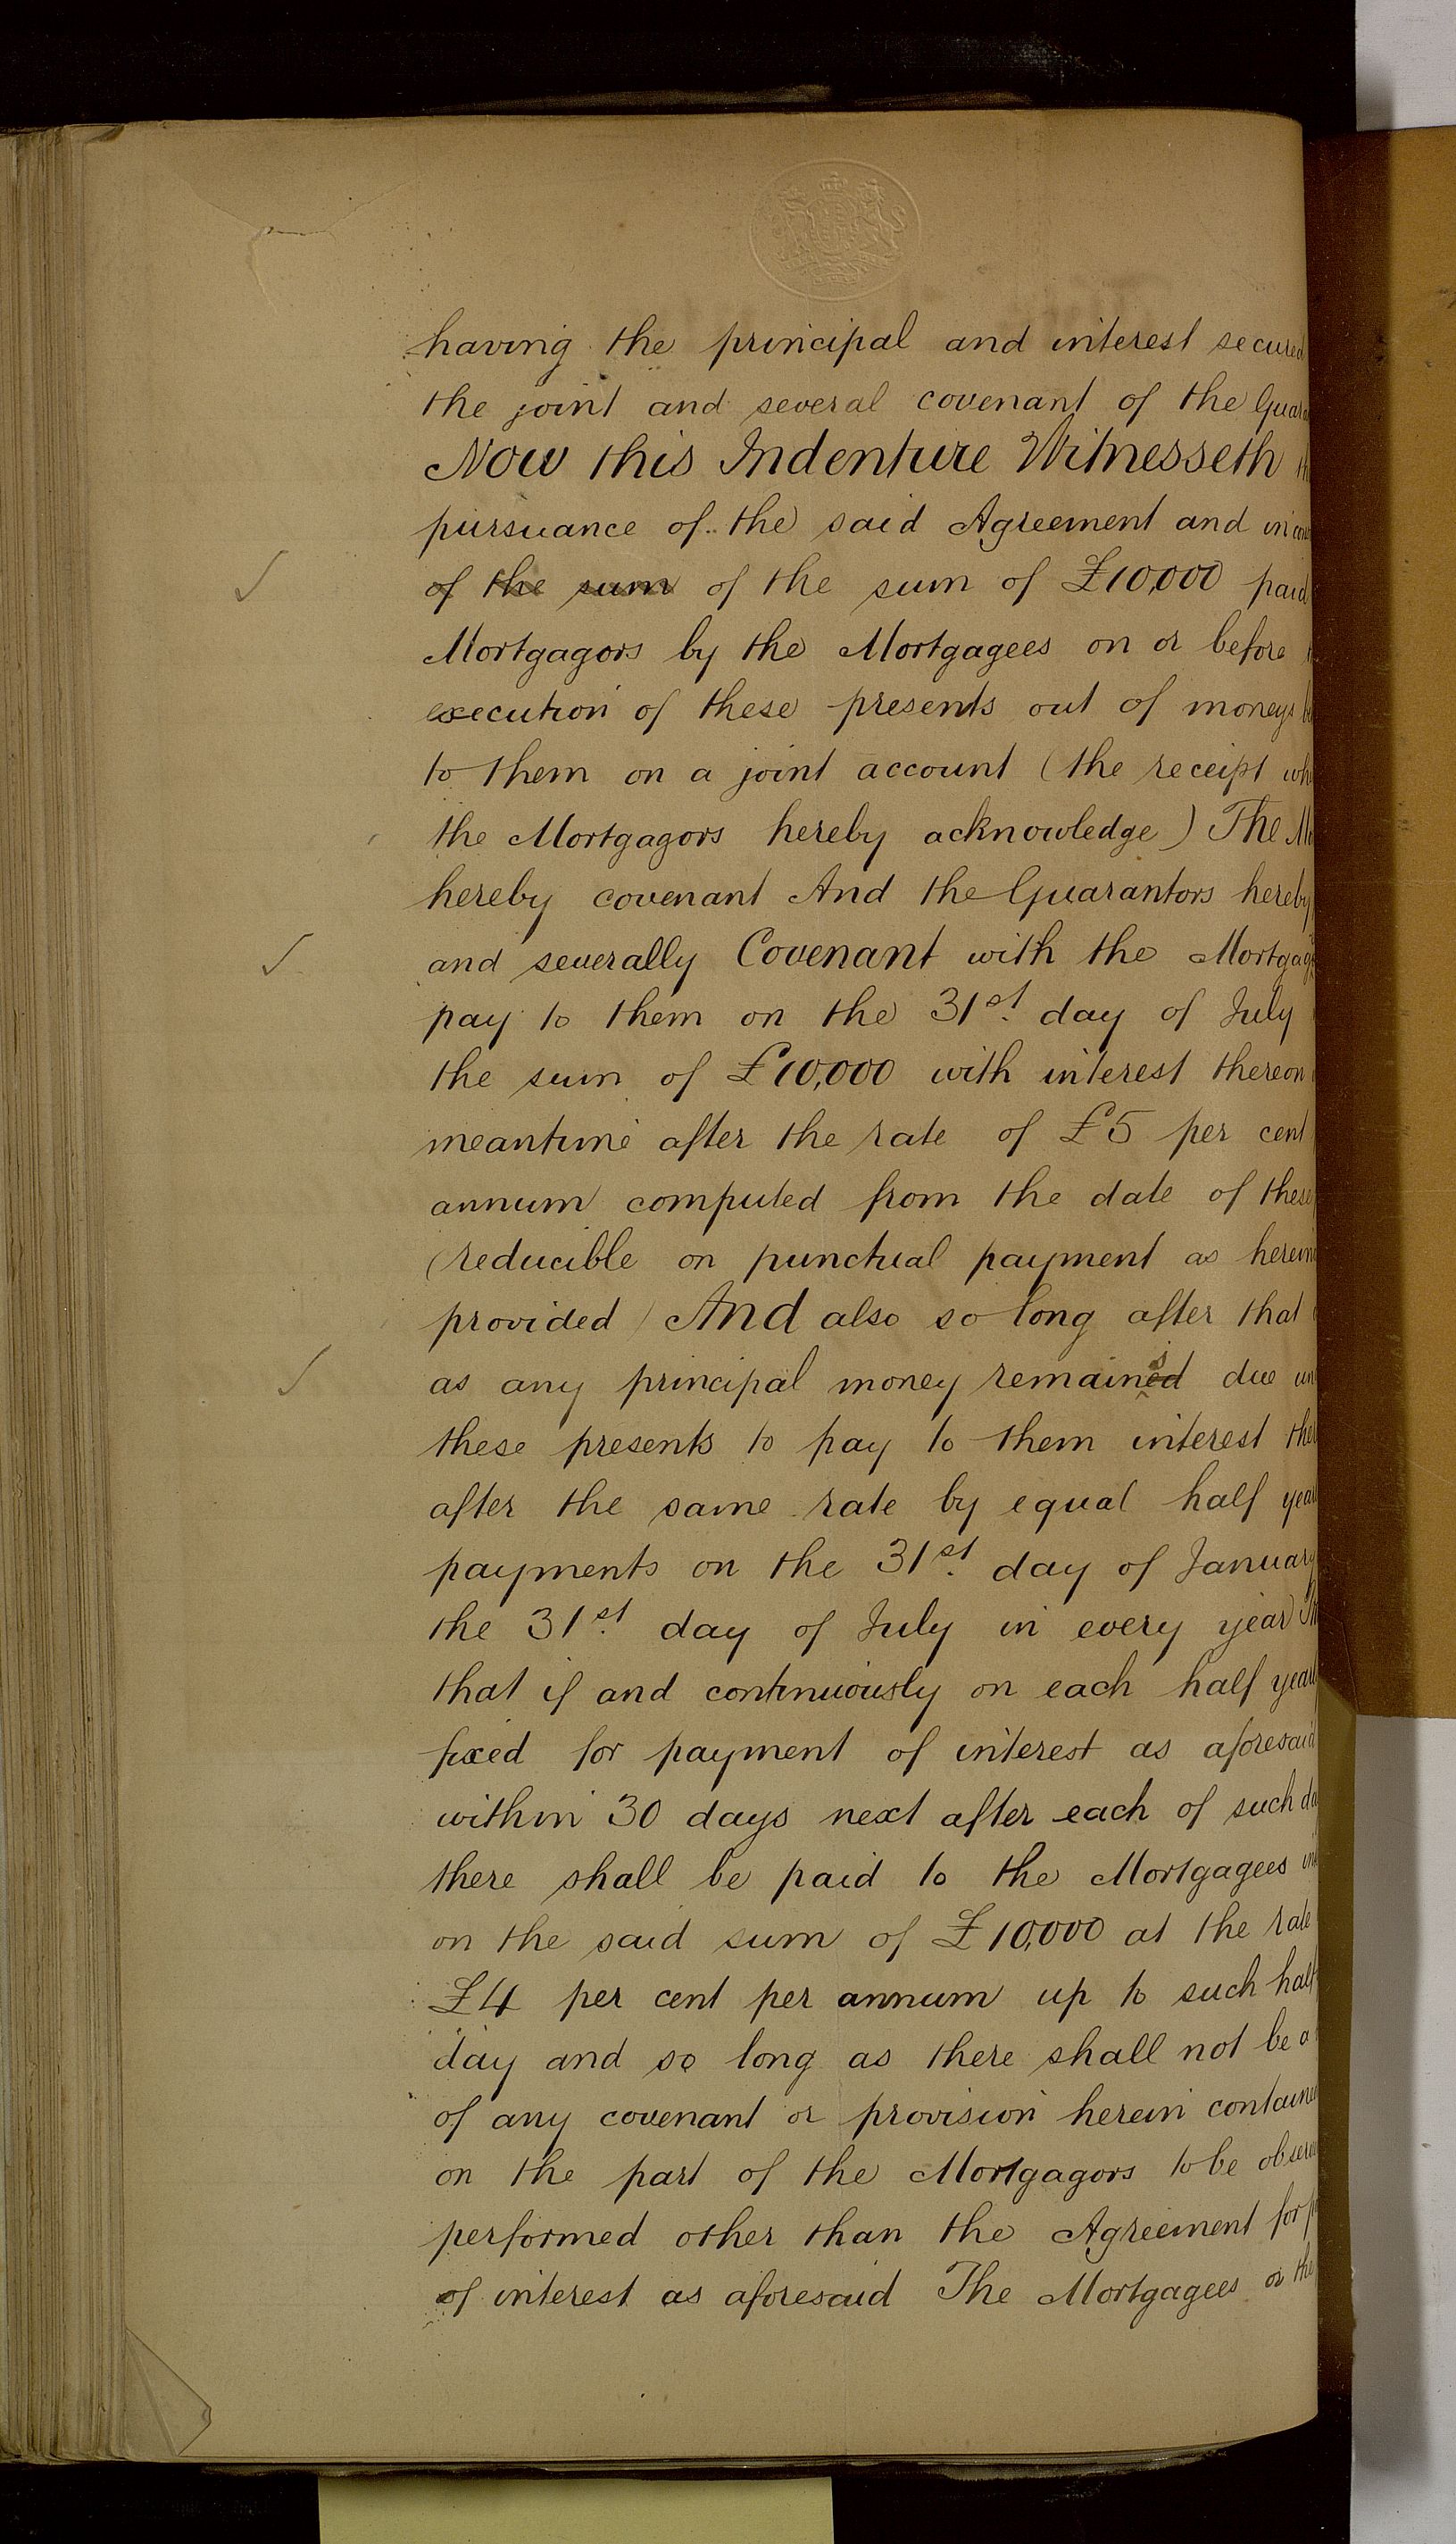 having the principal and interest secured
the joint and several covenant of the
Now this Indenture Witnesseth
pursuance of the said Agreement and in
of the sum of the sum of £10,000 paid
Mortgagors by the Mortgagees on or before
execution of these presents out of moneys
to them on a joint account (the receipt
the Mortgagors hereby acknowledge) The
hereby covenant And the Guarantors hereby
and severally Covenant with the
pay to them on the 31st. day of July
the sum of £10,000 with interest thereon
meantime after the rate of £5 per cent
annum computed from the date of these
(reducible on punctual payment as
provided) And also so long after that
as any principal money remains due
these presents to pay to them interest
after the same rate by equal half
payments on the 31st. day of January
the 31st. day of July in every year
that if and continuously on each half
fixed for payment of interest as aforesaid
within 30 days next after each of such
there shall be paid to the Mortgagees
on the said sum of £10,000 at the rate
£4 per cent per annum up to such half
day and so long as there shall not be a
of any covenant or provision herein
on the part of the Mortgagors to be
performed other than the Agreement for
of interest as aforesaid The Mortgagees or